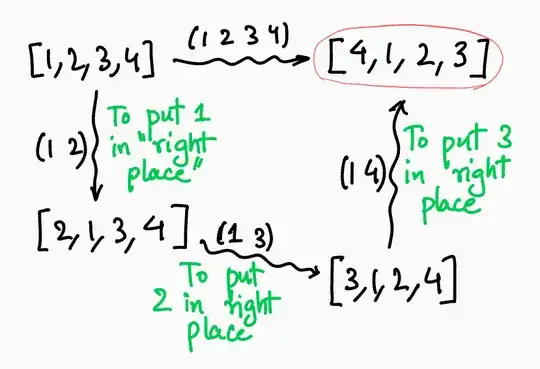 [1,2,3,4] (1 2 3 4) [4,1,2,3]
(1 2)
To put 1
in "right
place"
To put 3
in right
place
(1 4)
[2,1,3,4] (1 3) [3,1,2,4]
To put
2 in right
place